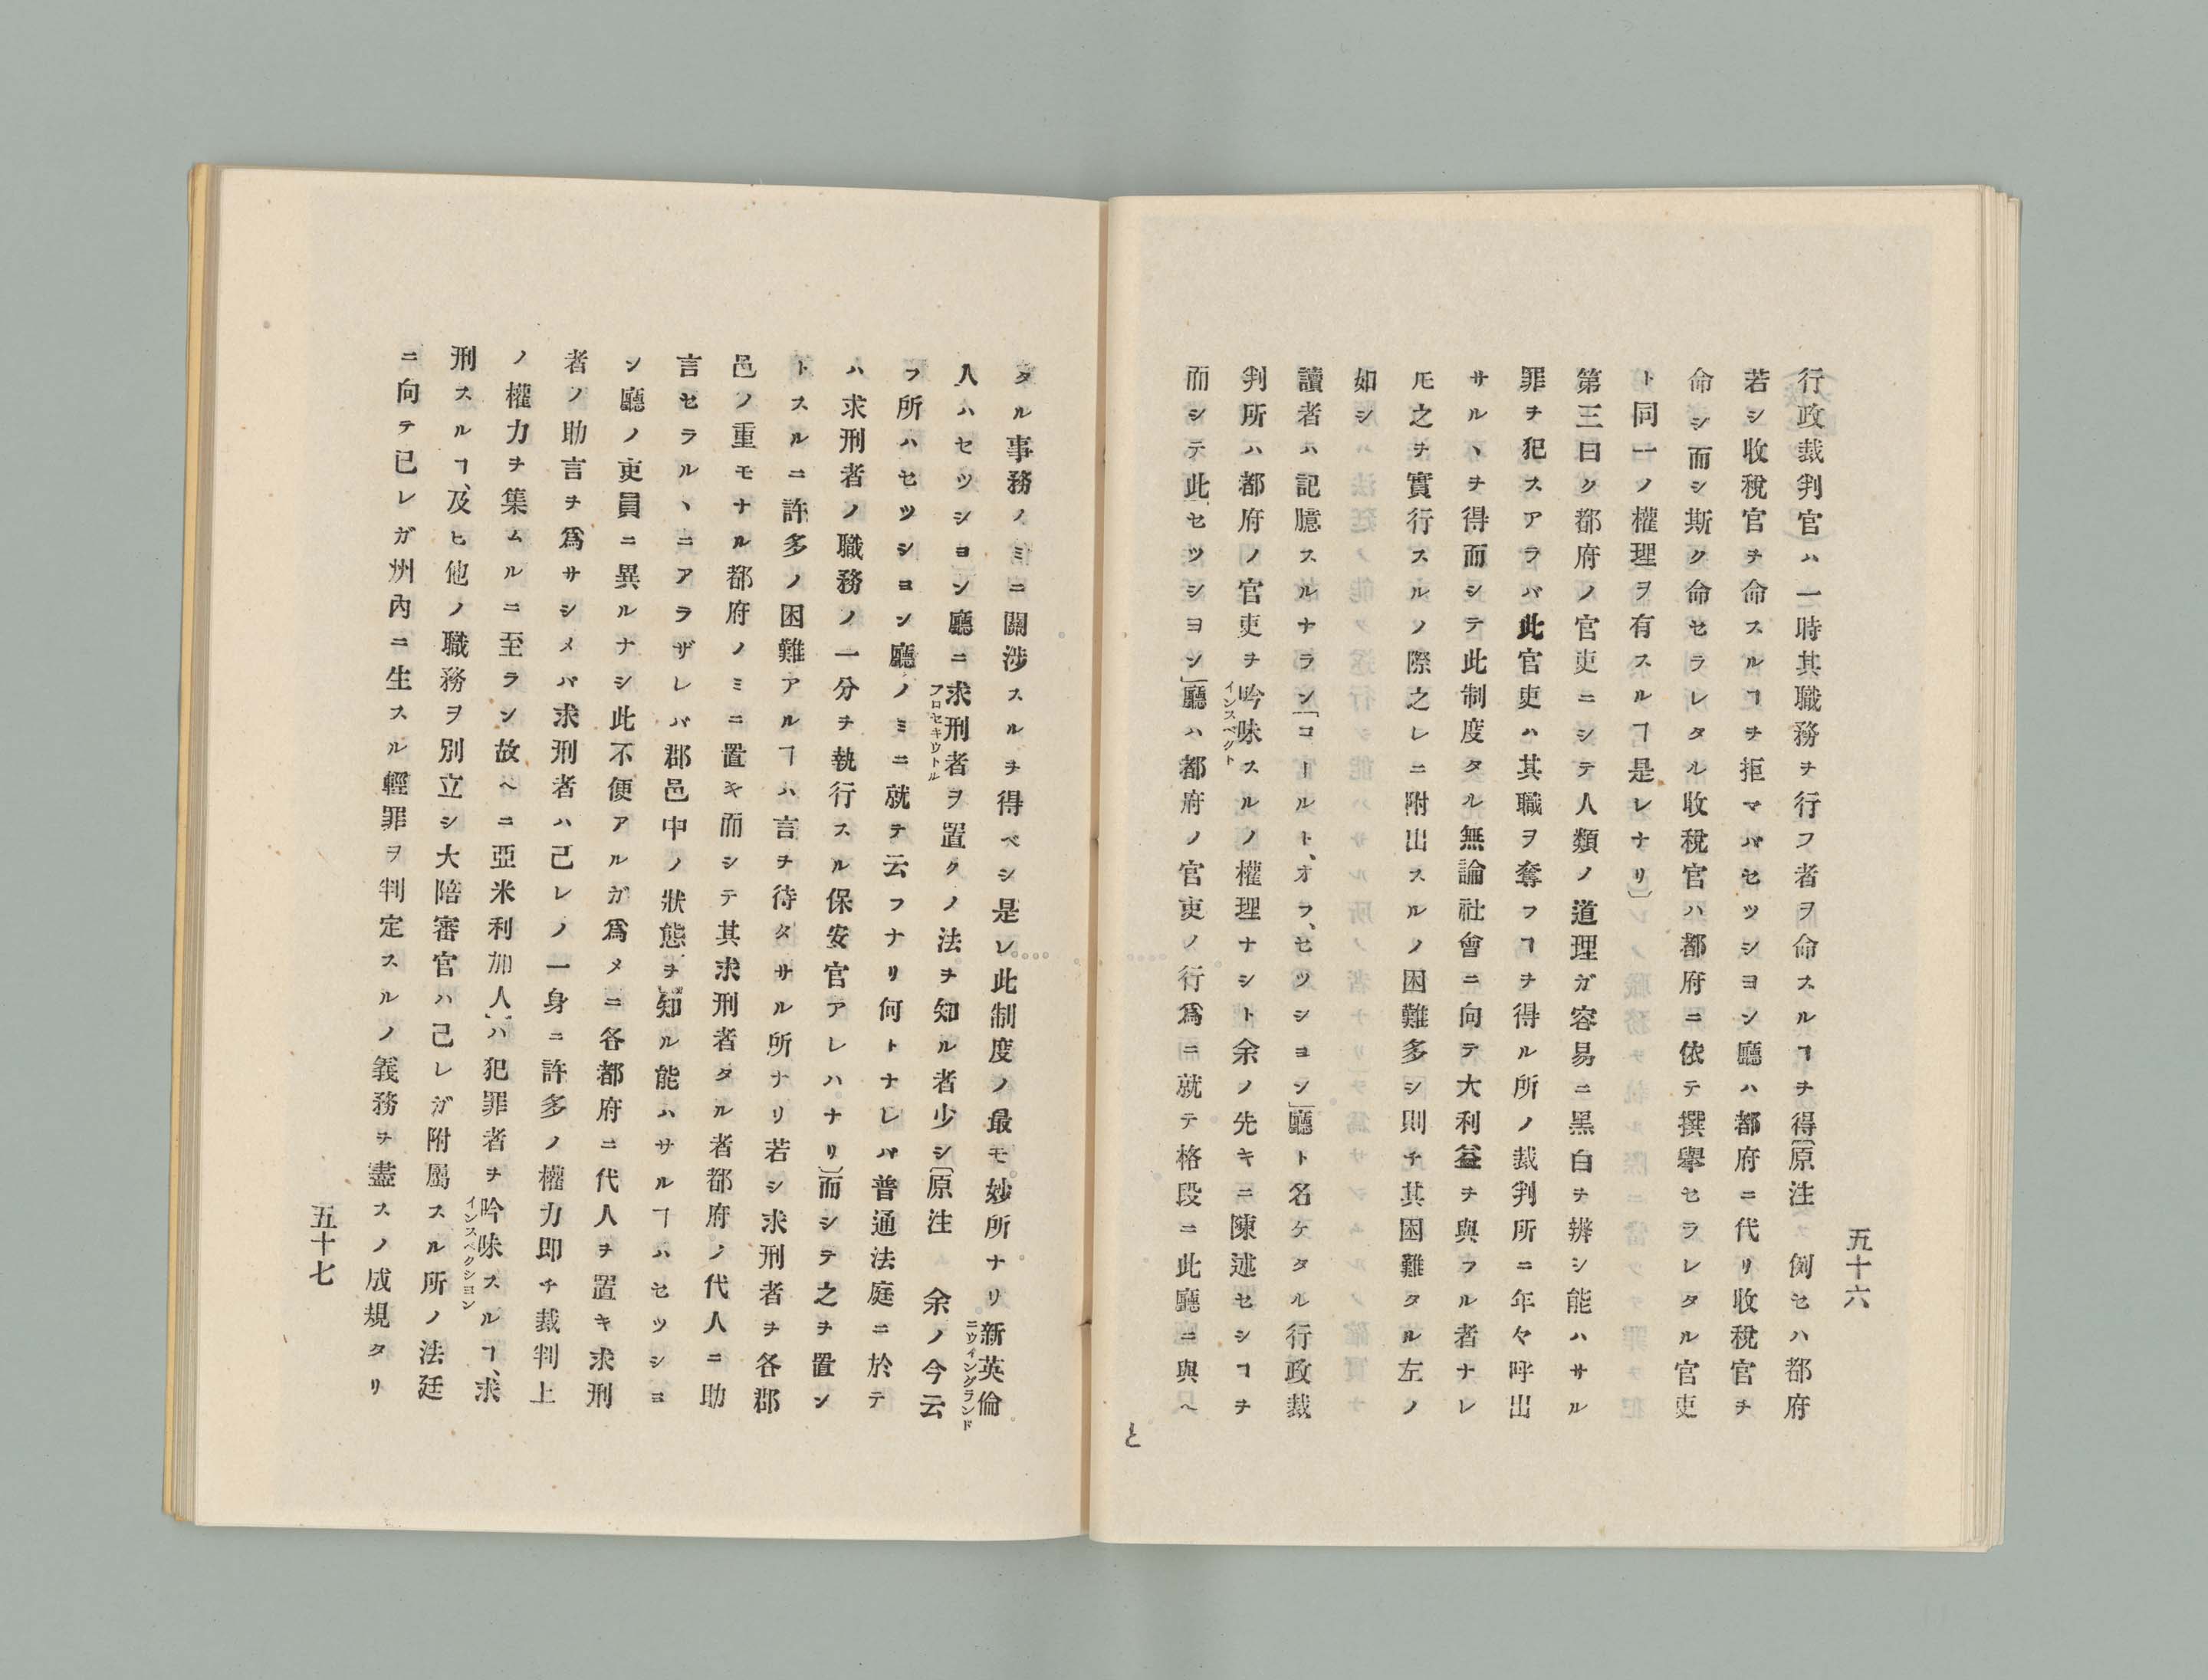 五十六
行政裁判官ハ一時其職務ヲ行フ者ヲ命スルヿヲ得〔原注 例セハ都府
若シ收稅官ヲ命スルヿヲ拒マバセツシヨン廳ハ都府ニ代リ收稅官ヲ
命シ而シ斯ク命セラレタル收稅官ハ都府ニ依テ撰擧セラレタル官吏
ト同一ノ權理ヲ有スルヿ是レナリ〕
第三曰ク都府ノ官吏ニシテ人類ノ道理ガ容易ニ黑白ヲ辨シ能ハサル
罪ヲ犯スアラバ此官吏ハ其職ヲ奪フヿヲ得ル所ノ裁判所ニ年々呼出
サルヽヲ得而シテ此制度タル無論社會ニ向テ大利益ヲ與フル者ナレ
𪜈之ヲ實行スルノ際之レニ附出スルノ困難多シ則チ其困難タル左ノ
如シ
讀者ハ記臆スルナラン「コールト、オフ、セツシヨン」廳ト名ケタル行政裁
判所ハ都府ノ官吏ヲ吟味スルノ權理ナシト余ノ先キニ陳述セシヿヲ
インスペクト
而シテ此「セツシヨン」廳ハ都府ノ官吏ノ行爲ニ就テ格段ニ此廳ニ與ヘ
と
タル事務ノミニ關涉スルヲ得ベシ是レ此制度ノ最モ妙所ナリ新英倫
ニウイングランド
人ハセツシヨン廳ニ求刑者ヲ置クノ法ヲ知ル者少シ〔原注 余ノ今云
プロセキウトル
フ所ハセツシヨン廳ノミニ就テ云フナリ何トナレバ普通法庭ニ於テ
ハ求刑者ノ職務ノ一分ヲ執行スル保安官アレハナリ〕而シテ之ヲ置ン
トスルニ許多ノ困難アルヿハ言ヲ待タサル所ナリ若シ求刑者ヲ各郡
邑ノ重モナル都府ノミニ置キ而シテ其求刑者タル者都府ノ代人ニ助
言セラルヽニアラザレバ郡邑中ノ狀態ヲ知ル能ハサルヿハセツシヨ
ン廳ノ吏員ニ異ルナシ此不便アルガ爲メニ各都府ニ代人ヲ置キ求刑
者ノ助言ヲ爲サシメバ求刑者ハ己レノ一身ニ許多ノ權力即チ裁判上
ノ權力ヲ集ムルニ至ラン故ヘニ亞米利加人ハ犯罪者ヲ吟味スルヿ、求
インスペクシヨン
刑スルヿ、及ヒ他ノ職務ヲ別立シ大陪審官ハ己レガ附屬スル所ノ法廷
ニ向テ已レガ州內ニ生スル輕罪ヲ判定スルノ義務ヲ盡スノ成規タリ
五十七